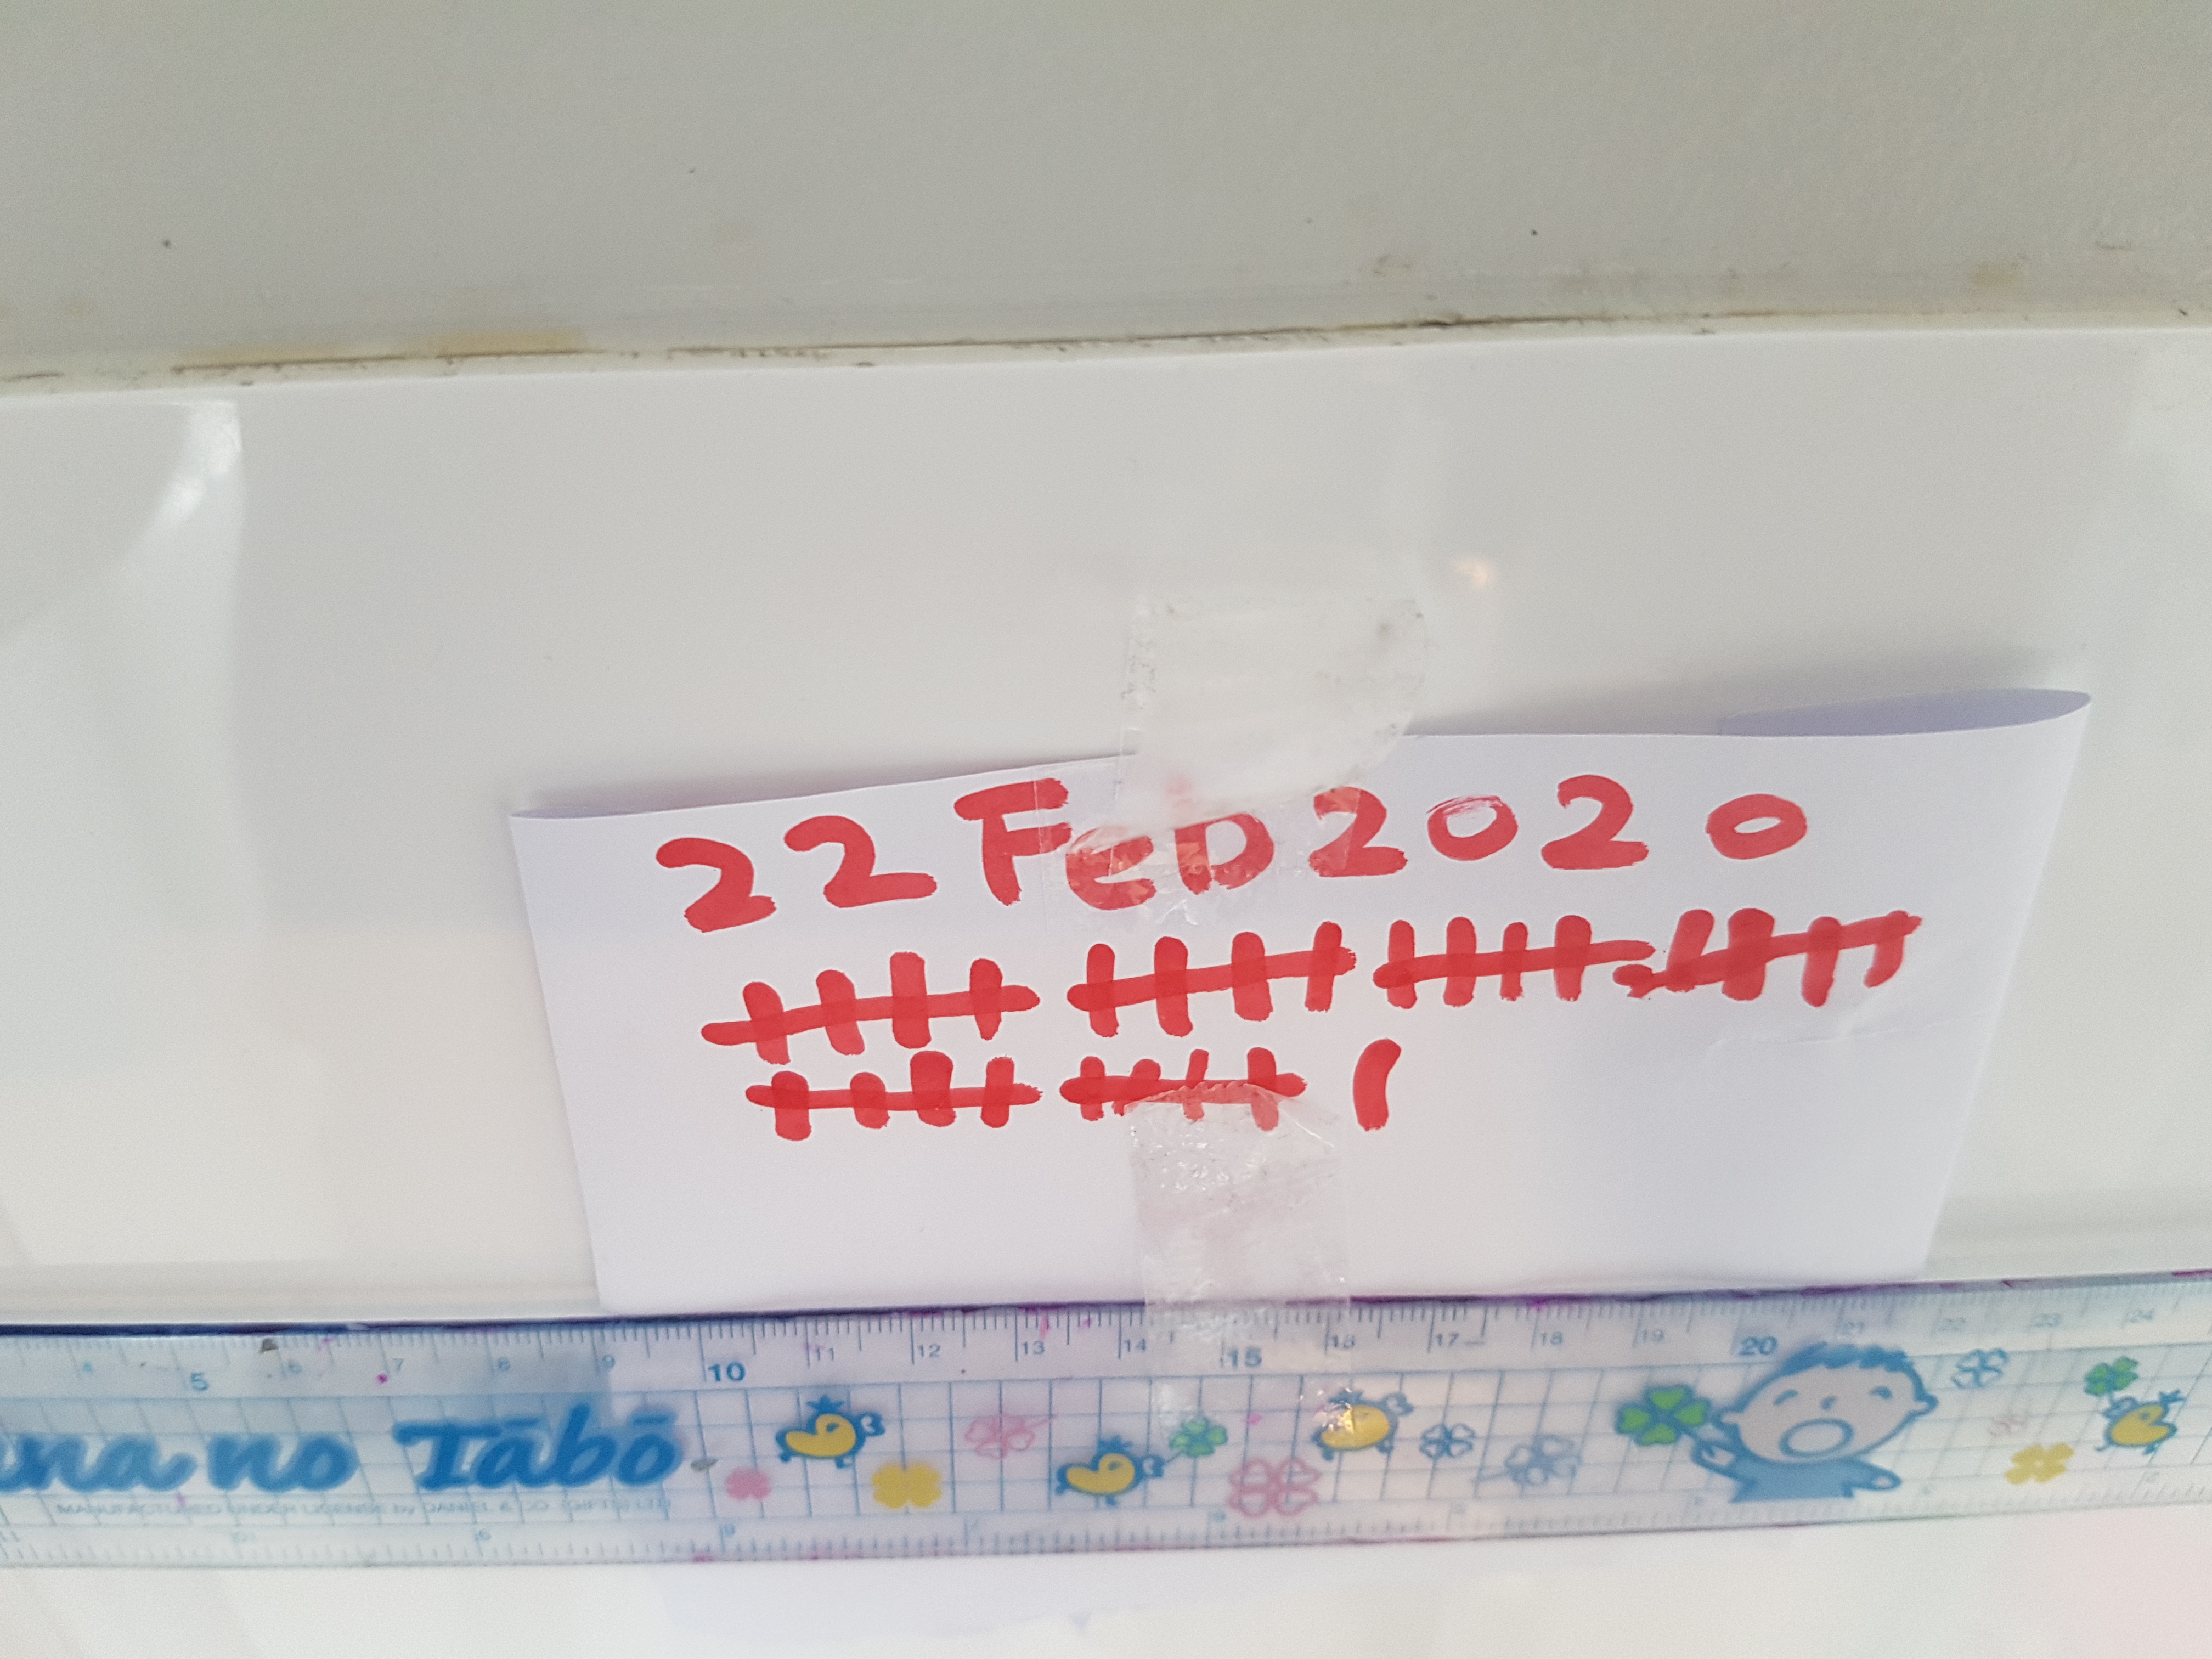 22 Feb 2020
5 6 7 8 9 10 11 12 13 14 15 16 17 18 19 20 21 22 23 24
na no Tābō
MANUFACTURED UNDER LICENSE by DANIEL & CO (GIFTS) LTD